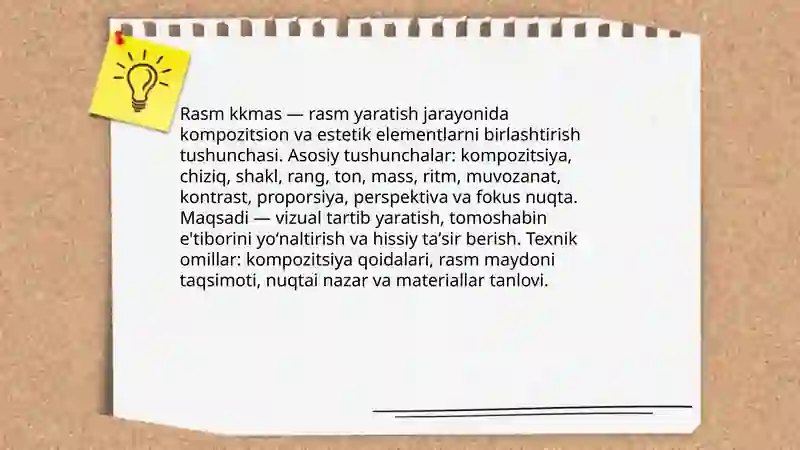 Rasm kkmas — rasm yaratish jarayonida
kompozitsion va estetik elementlarni birlashtirish
tushunchasi. Asosiy tushunchalar: kompozitsiya,
chiziq, shakl, rang, ton, mass, ritm, muvozanat,
kontrast, proporsiya, perspektiva va fokus nuqta.
Maqsadi — vizual tartib yaratish, tomoshabin
e'tiborini yoʻnaltirish va hissiy taʼsir berish. Texnik
omillar: kompozitsiya qoidalari, rasm maydoni
taqsimoti, nuqtai nazar va materiallar tanlovi.